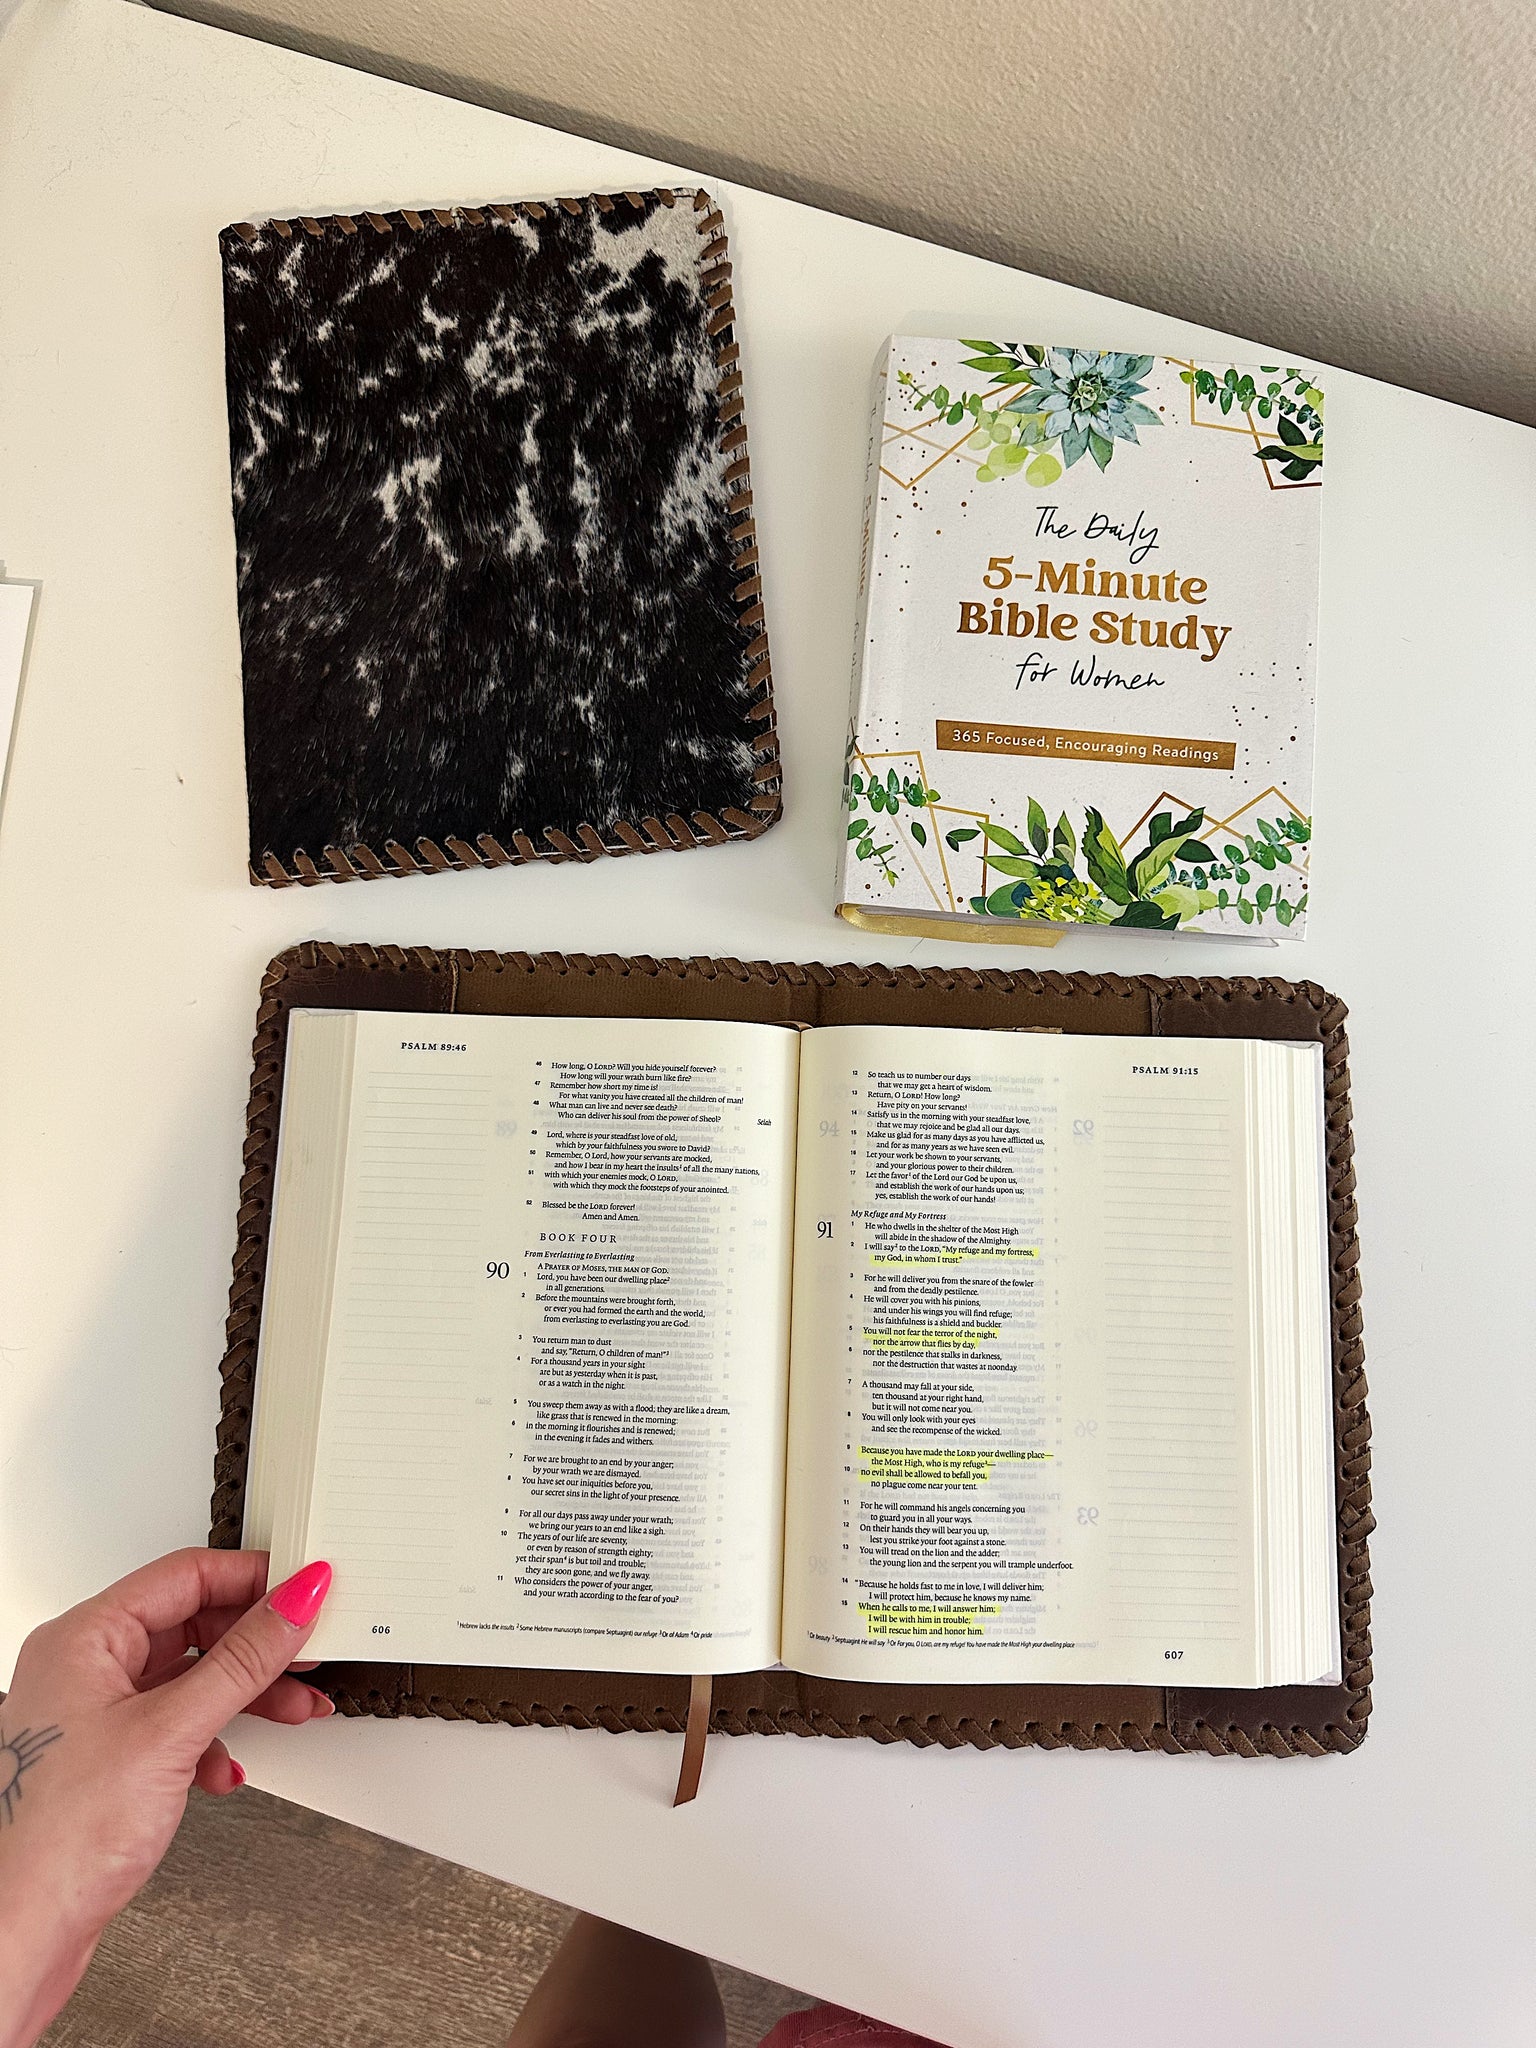 The Daily
5-Minute
Bible Study
for Women
365 Focused, Encouraging Readings
PSALM 89:46
46 How long, O LORD? Will you hide yourself forever?
How long will your wrath burn like fire?
47 Remember how short my time is!
For what vanity you have created all the children of man!
48 What man can live and never see death?
Who can deliver his soul from the power of Sheol? Selah
49 Lord, where is your steadfast love of old,
which by your faithfulness you swore to David?
50 Remember, O Lord, how your servants are mocked,
and how I bear in my heart the insults¹ of all the many nations,
51 with which your enemies mock, O LORD,
with which they mock the footsteps of your anointed.
52 Blessed be the LORD forever!
Amen and Amen.
BOOK FOUR
From Everlasting to Everlasting
90 A PRAYER OF MOSES, THE MAN OF GOD.
1 Lord, you have been our dwelling place²
in all generations.
2 Before the mountains were brought forth,
or ever you had formed the earth and the world,
from everlasting to everlasting you are God.
3 You return man to dust
and say, "Return, O children of man!"³
4 For a thousand years in your sight
are but as yesterday when it is past,
or as a watch in the night.
5 You sweep them away as with a flood; they are like a dream,
like grass that is renewed in the morning:
6 in the morning it flourishes and is renewed;
in the evening it fades and withers.
7 For we are brought to an end by your anger;
by your wrath we are dismayed.
8 You have set our iniquities before you,
our secret sins in the light of your presence.
9 For all our days pass away under your wrath;
we bring our years to an end like a sigh.
10 The years of our life are seventy,
or even by reason of strength eighty;
yet their span⁴ is but toil and trouble;
they are soon gone, and we fly away.
11 Who considers the power of your anger,
and your wrath according to the fear of you?
¹ Hebrew lacks the insults ² Some Hebrew manuscripts (compare Septuagint) our refuge ³ Or of Adam ⁴ Or pride
606
PSALM 91:15
12 So teach us to number our days
that we may get a heart of wisdom.
13 Return, O LORD! How long?
Have pity on your servants!
14 Satisfy us in the morning with your steadfast love,
that we may rejoice and be glad all our days.
15 Make us glad for as many days as you have afflicted us,
and for as many years as we have seen evil.
16 Let your work be shown to your servants,
and your glorious power to their children.
17 Let the favor¹ of the Lord our God be upon us,
and establish the work of our hands upon us;
yes, establish the work of our hands!
My Refuge and My Fortress
91 1 He who dwells in the shelter of the Most High
will abide in the shadow of the Almighty.
2 I will say² to the LORD, "My refuge and my fortress,
my God, in whom I trust."
3 For he will deliver you from the snare of the fowler
and from the deadly pestilence.
4 He will cover you with his pinions,
and under his wings you will find refuge;
his faithfulness is a shield and buckler.
5 You will not fear the terror of the night,
nor the arrow that flies by day,
6 nor the pestilence that stalks in darkness,
nor the destruction that wastes at noonday.
7 A thousand may fall at your side,
ten thousand at your right hand,
but it will not come near you.
8 You will only look with your eyes
and see the recompense of the wicked.
9 Because you have made the LORD your dwelling place—
the Most High, who is my refuge³—
10 no evil shall be allowed to befall you,
no plague come near your tent.
11 For he will command his angels concerning you
to guard you in all your ways.
12 On their hands they will bear you up,
lest you strike your foot against a stone.
13 You will tread on the lion and the adder;
the young lion and the serpent you will trample underfoot.
14 "Because he holds fast to me in love, I will deliver him;
I will protect him, because he knows my name.
15 When he calls to me, I will answer him;
I will be with him in trouble;
I will rescue him and honor him.
¹ Or beauty ² Septuagint He will say ³ Or For you, O LORD, are my refuge! You have made the Most High your dwelling place
607